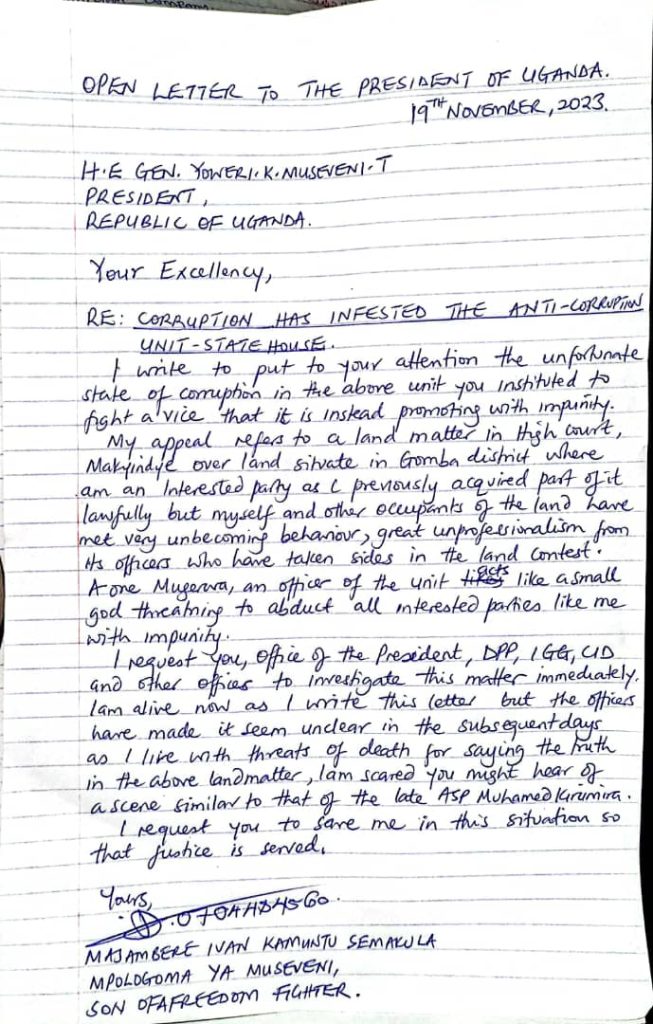 OPEN LETTER TO THE PRESIDENT OF UGANDA.
19TH NOVEMBER, 2023.
H.E GEN. YOWERI.K.MUSEVENI.T
PRESIDENT,
REPUBLIC OF UGANDA.
Your Excellency,
RE: CORRUPTION HAS INFESTED THE ANTI-CORRUPTION
UNIT-STATE HOUSE.
I write to put to your attention the unfortunate
state of corruption in the above unit you instituted to
fight a vice that it is instead promoting with impunity.
My appeal refers to a land matter in High court,
Makyindye over land situate in Gomba district where
am an Interested party as I previously acquired part of it
lawfully but myself and other occupants of the land have
met very unbecoming behaviour, great unprofessionalism from
its officers who have taken sides in the land contest.
A one Mugerwa, an officer of the unit acts like a small
god threatning to abduct all interested parties like me
with impunity.
I request you, Office of the President, DPP, IGG, CID
and other offices to investigate this matter immediately.
Iam alive now as I write this letter but the officers
have made it seem unclear in the subsequent days
as I live with threats of death for saying the truth
in the above landmatter, Iam scared you might hear of
a scene similar to that of the late ASP Muhamed Kirumira.
I request you to save me in this situation so
that justice is served.
Yours,
MAJAMBERE IVAN KAMUNTU SEMAKULA
MPOLOGOMA YA MUSEVENI,
SON OF A FREEDOM FIGHTER.